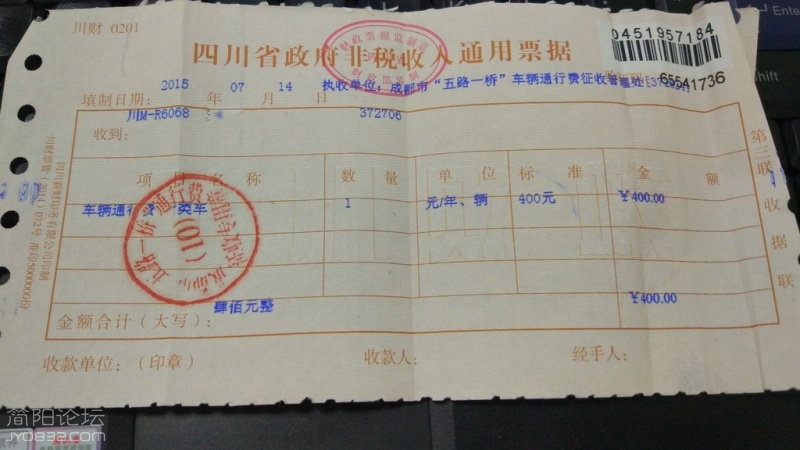 川财 0201
财政票据监制章
财政部监制
四川省政府非税收入通用票据
0451957184
65541736
填制日期：2015 年 07 月 14 执收单位：成都市“五路一桥”车辆通行费征收管理处
川M-R6068 372706
收到：
项 目 名 称 数 量 单 位 标 准 金 额
车辆通行费 类车 1 元/年、辆 400元 ￥400.00
五路一桥 通行费
(01)
肆佰元整 ￥400.00
金额合计（大写）：
收款单位：（印章） 收款人： 经手人：
第三联 收据联
简阳论坛
JY0832.com